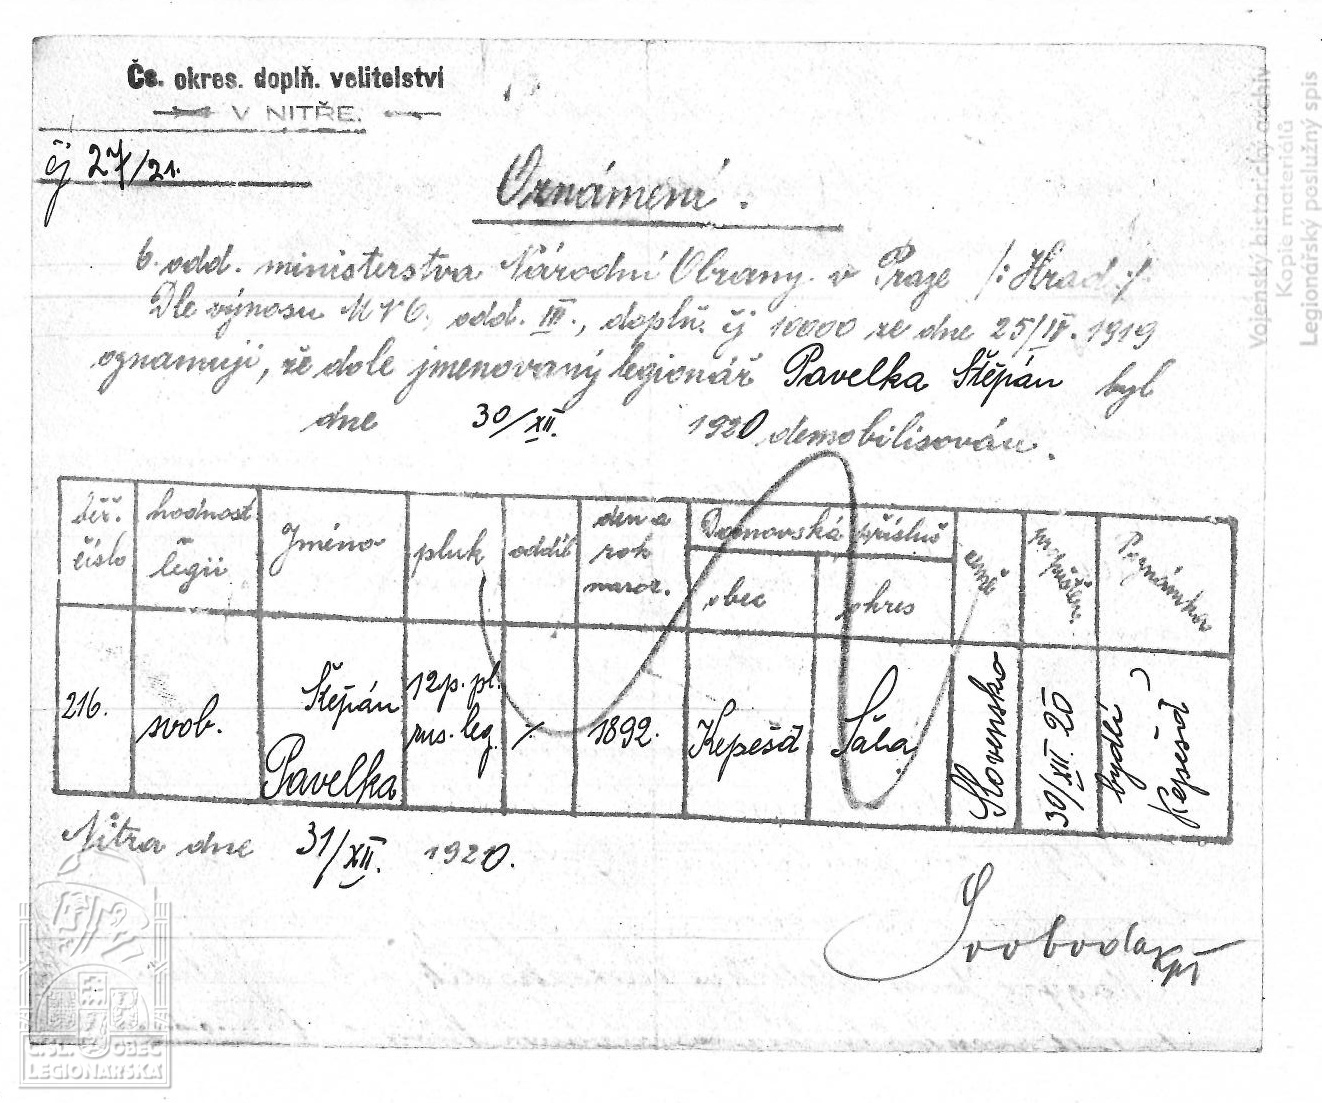 Čs. okres. doplň. velitelství
V NITŘE.
čj 27/21.
Oznámení.
6. odd. ministerstva Národní Obrany v Praze /: Hrad :/
Dle výnosu MNO, odd. III., doplň. čj 10000 ze dne 25/IV. 1919
oznamuji, že dole jmenovaný legionář Pavelka Štěpán byl
dne 30/XII. 1920 demobilisován.
běž. číslo
hodnost legii
Jméno
pluk
oddíl
den a rok naroz.
Domovská přísluš
obec
okres
země
propuštěn
Poznámka
216.
svob.
Štěpán Pavelka
12 p. pl. rus. leg.
/
1892.
Kepešd
Šala
Slovensko
30/XII. 20
bydlí Kepešd
Nitra dne 31/XII. 1920.
Svoboda kpt
Vojenský historický archiv
Kopie materiálů
Legionářský poslužný spis
Č.SL. OBEC
LEGIONÁŘSKÁ